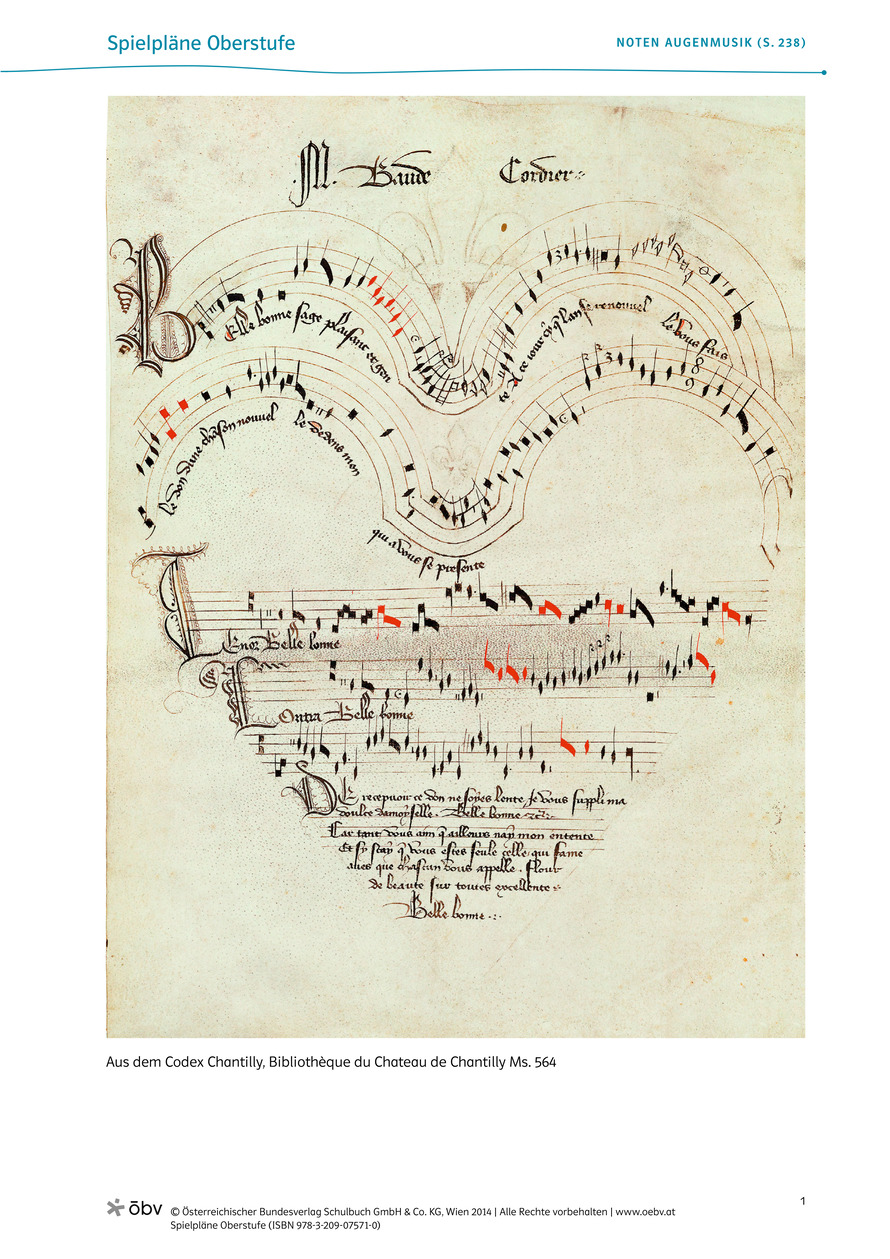 Spielpläne Oberstufe
NOTEN AUGENMUSIK (S. 238)
M. Baude Cordier
Belle bonne sage plaisant et gen
te A ce jour cy q lan se renouvel
le vous fais
le don dune chanson nouvel
le dedens mon
qui a vous se presente
Tenor Belle bonne
Contra Belle bonne
De recepvoir ce don ne soyes lente Je vous suppli ma
doulce damoyselle. Belle bonne
Car tant vous aim q ailleurs nay mon entente
Et sy scay q vous estes seule celle qui fame
aves que chascun vous appelle. flour
de beaute sur toutes excellente
Belle bonne
Aus dem Codex Chantilly, Bibliothèque du Chateau de Chantilly Ms. 564
1
öbv
© Österreichischer Bundesverlag Schulbuch GmbH & Co. KG, Wien 2014 | Alle Rechte vorbehalten | www.oebv.at
Spielpläne Oberstufe (ISBN 978-3-209-07571-0)